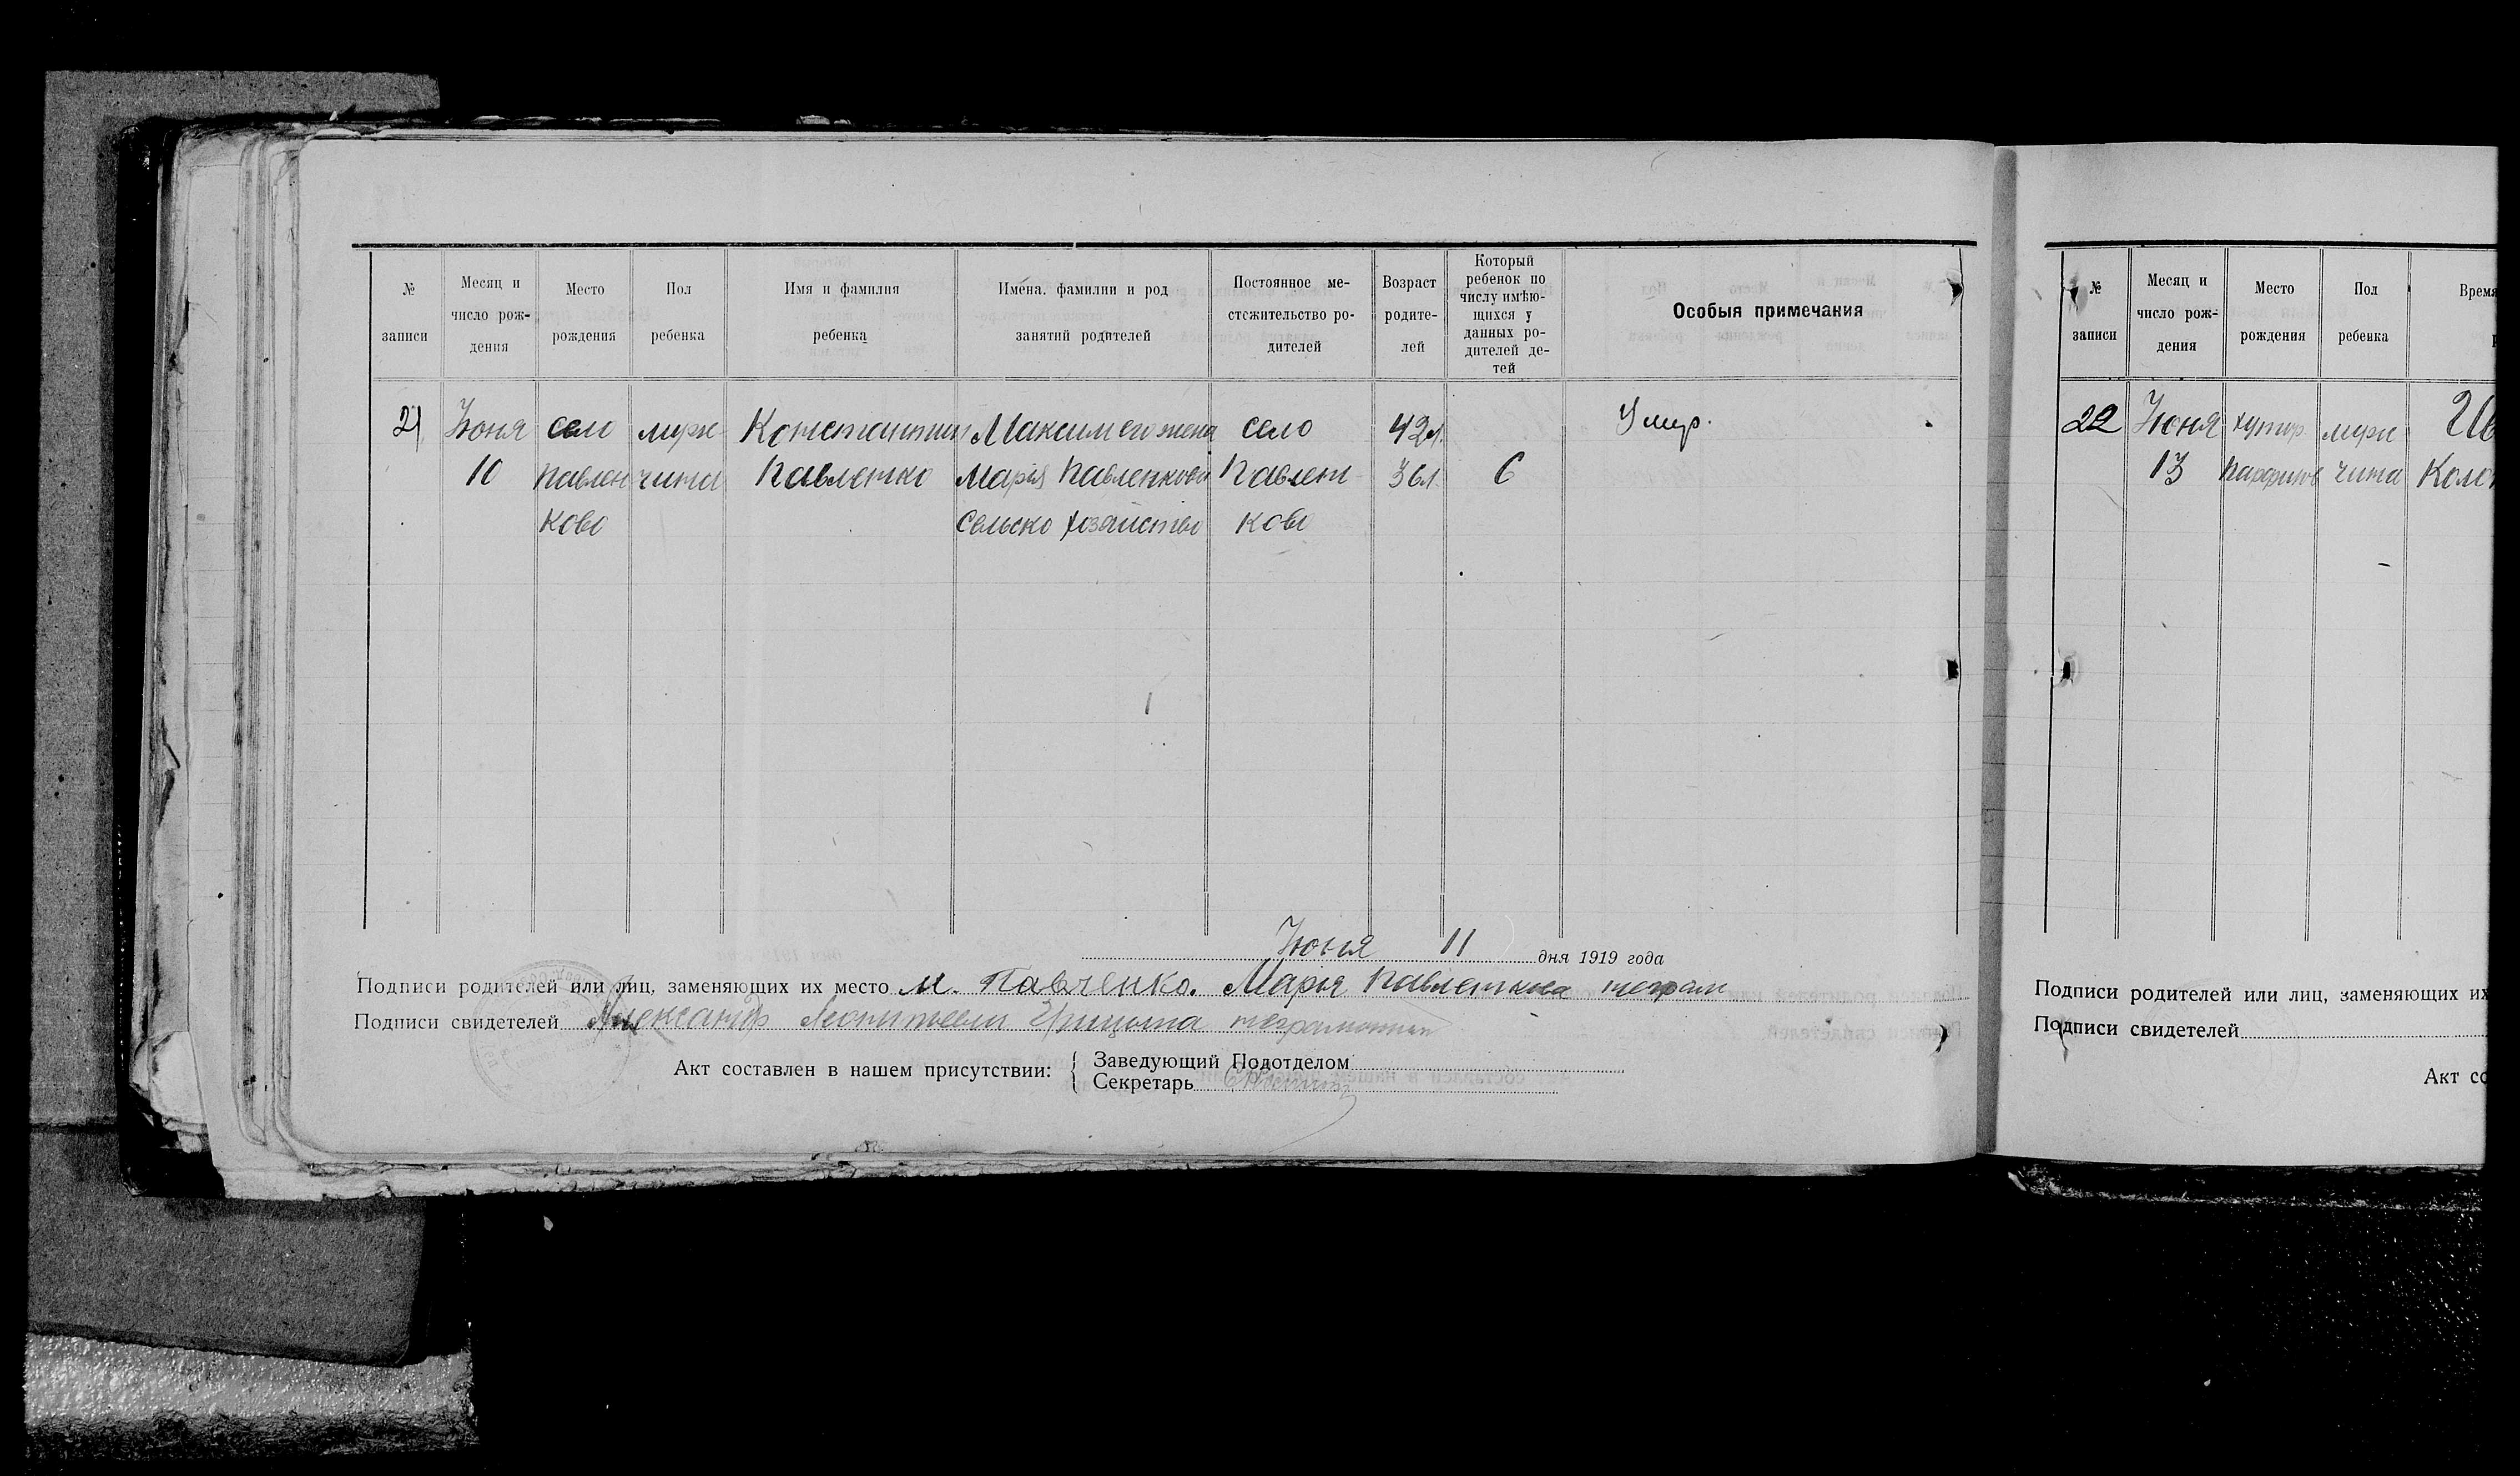 № записи
Месяц и число рож-
дения
Место рождения
Пол ребенка
Имя и фамилия ребенка
Имена, фамилии и род занятий родителей
Постоянное ме-
стожительство ро-
дителей
Возраст родите-
лей
Который
ребенок по
числу имѣю-
щихся у
данных ро-
дителей де-
тей
Особыя примечания
21 Июня село муж Константин Максим его жена село 42 л. Умер.
10 Павлен чина Павленко Мария Павленкова Павлен 36 л. 6
ково сельско хозяйство ково
Июня 11 дня 1919 года
Подписи родителей или лиц, заменяющих их место М. Павленко. Марья Павленкова неграм
Подписи свидетелей Александр неграмотный
Акт составлен в нашем присутствии:
Заведующий Подотделом
Секретарь
№ записи
Месяц и число рож-
дения
Место рождения
Пол ребенка
Время
22 Июня хутор мущ
13 чина
Подписи родителей или лиц, заменяющих их
Подписи свидетелей
Акт со